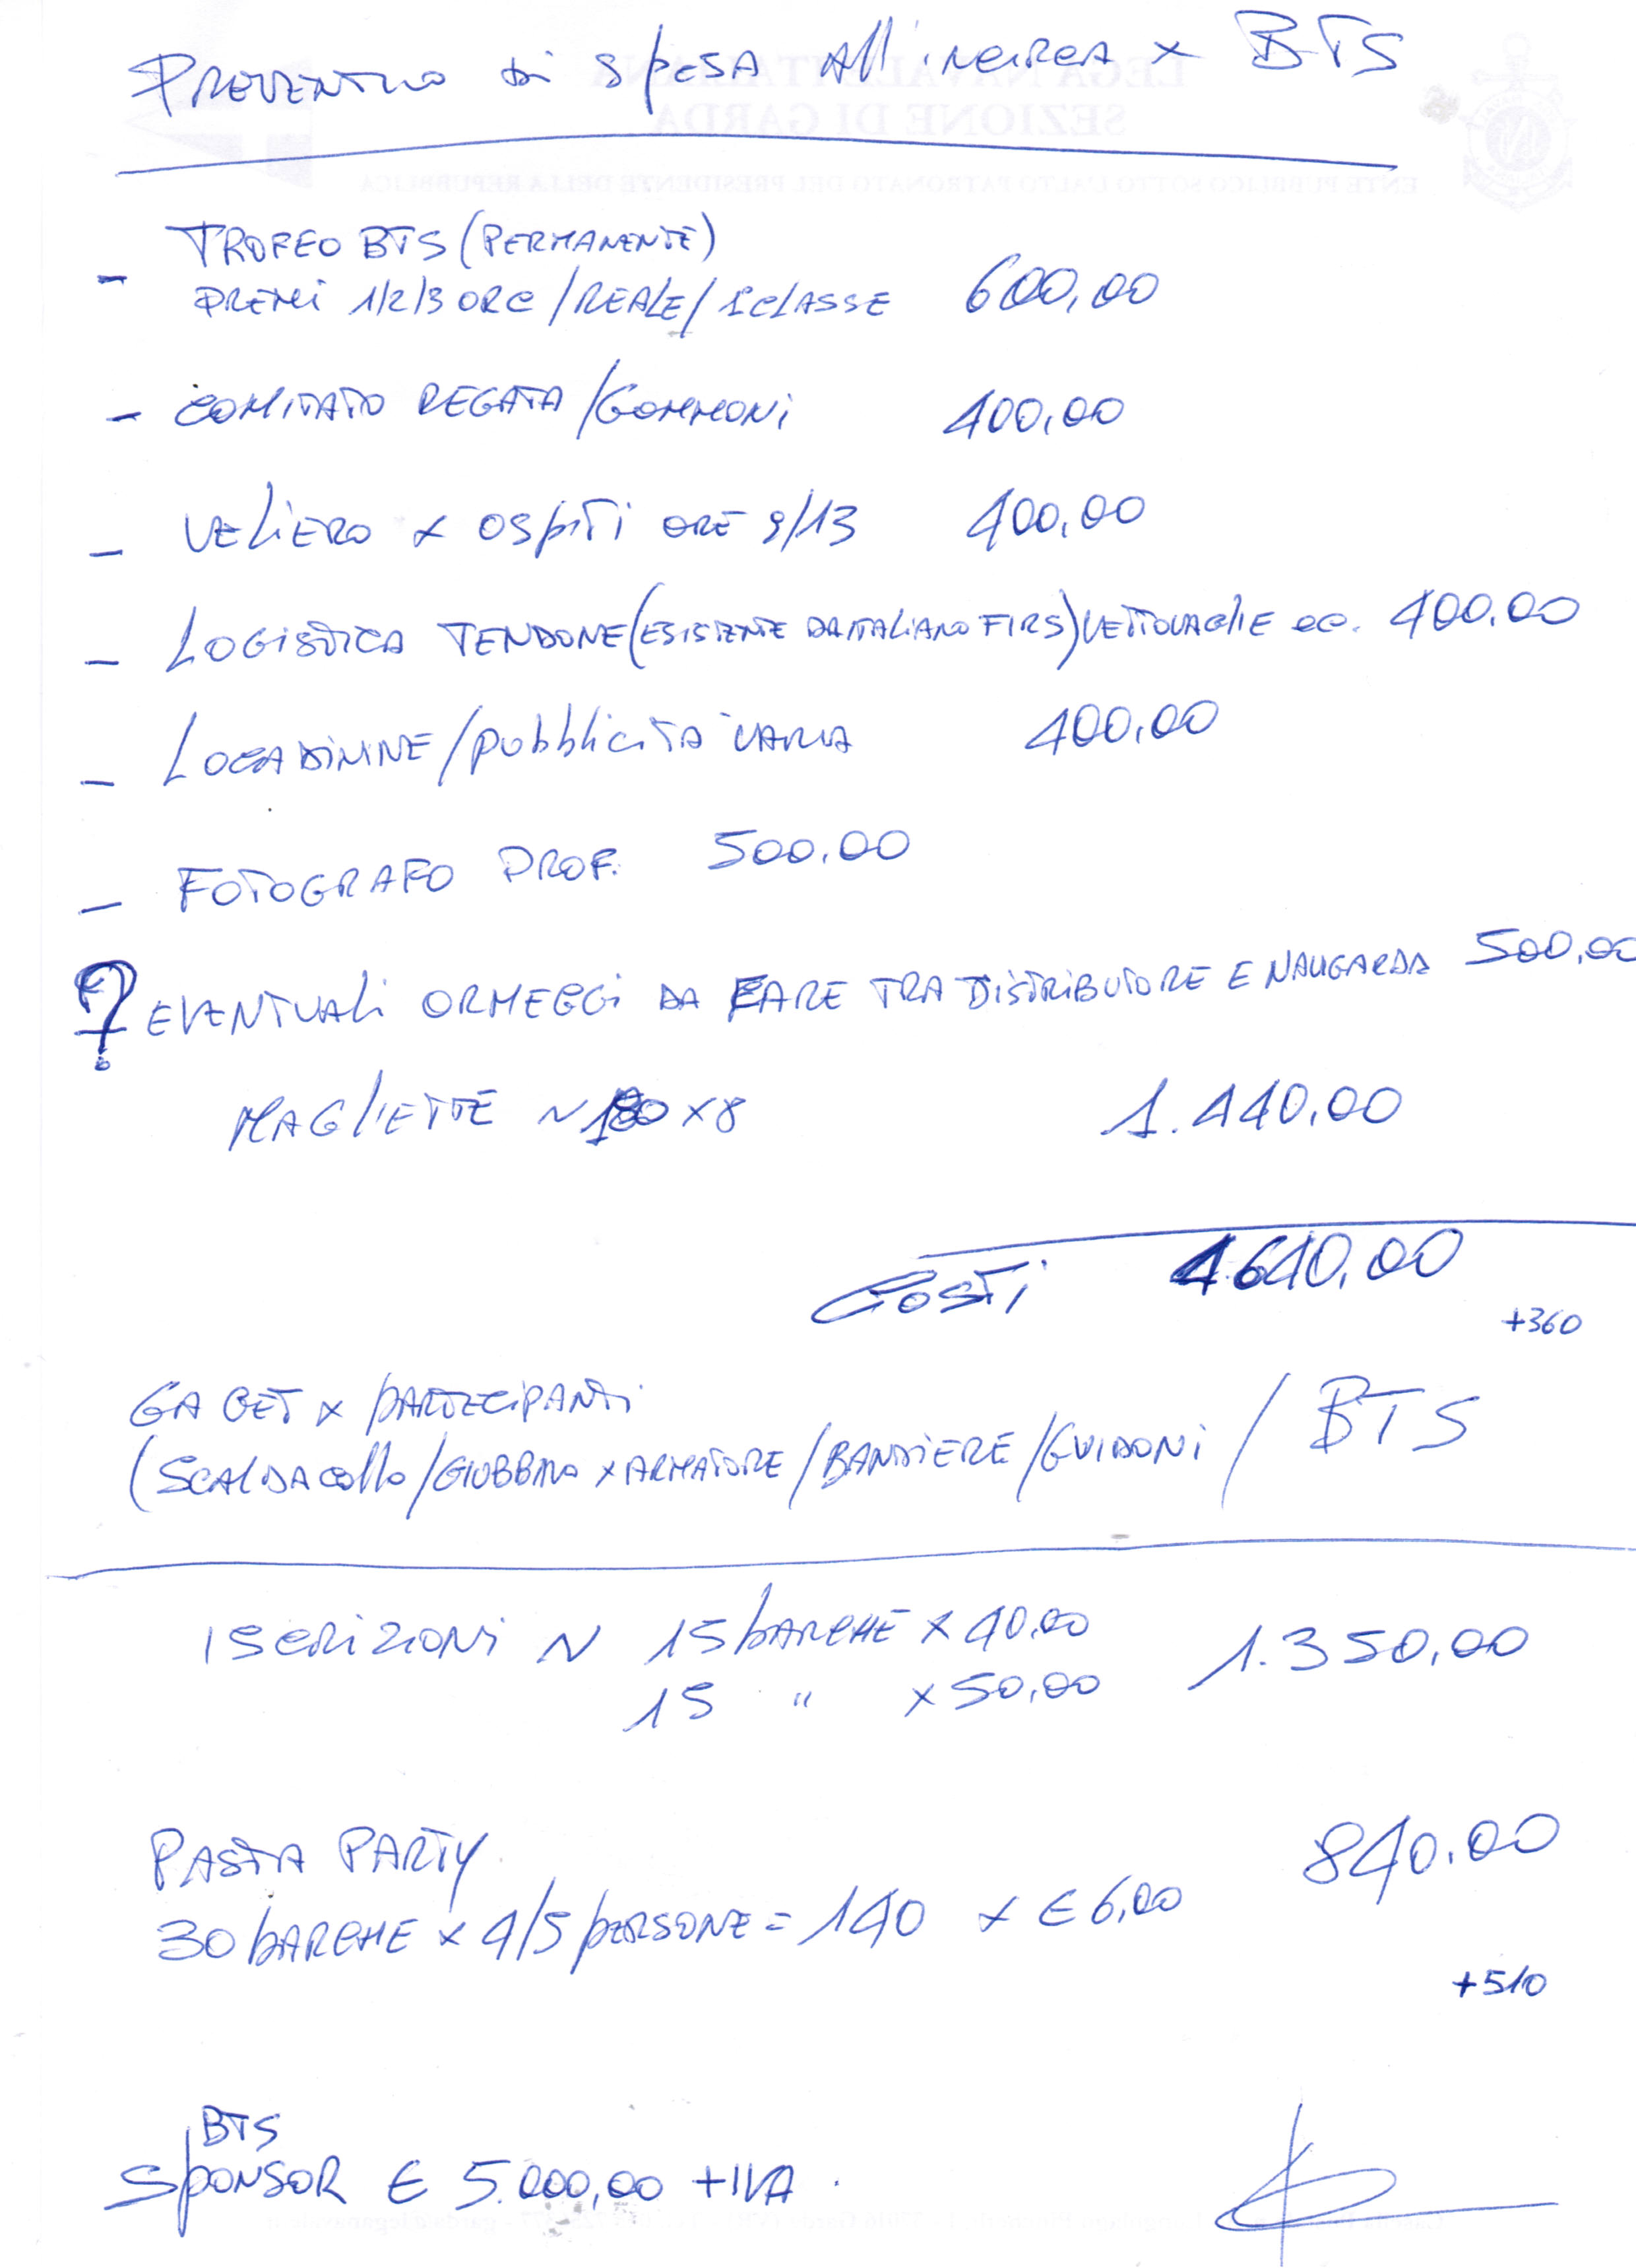 PREVENTIVO di SPESA All'INCIRCA x BTS
- TROFEO BTS (PERMANENTE)
PREMI 1/2/3 ORC / REALE / 1 CLASSE 600,00
- COMITATO REGATA / GOMMONI 400,00
- VELIERO x OSPITI ORE 9/13 400,00
- LOGISTICA TENDONE (ESISTENTE DA ITALIANO FIRS) VETTOVAGLIE ec. 400.00
- LOCANDINE / pubblicità VARIA 400,00
- FOTOGRAFO PROF. 500.00
? EVENTUALI ORMEGGI DA FARE TRA DISTRIBUTORE E NAVIGARDA 500,00
MAGLIETTE N 180 x 8 1.440,00
COSTI 4640,00
+360
GAGET x PARTECIPANTI
(SCALDACOLLO / GIUBBINO x ARMATORE / BANDIERE / GUIDONI / BTS
ISCRIZIONI N 15 BARCHE x 40.00
15 " x 50,00 1.350,00
PASTA PARTY 840.00
30 BARCHE x 4/5 PERSONE = 140 x € 6,00
+510
BTS
SPONSOR € 5.000,00 + IVA.
LEGA NAVALE ITALIANA
SEZIONE DI GARDA
ENTE PUBBLICO SOTTO L'ALTO PATRONATO DEL PRESIDENTE DELLA REPUBBLICA